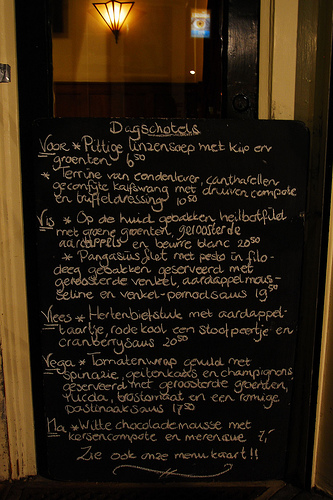 Dagschotels
Voor * Pittige linzensoep met kip en
groenten 6 50
* Terrine van eendenlever, cantharellen
geconfijte kalfswang met druiven compote
en truffeldressing 10 50
Vis * Op de huid gebakken heilbotfild
met groene groenten, geroosterde
aardappels en beurre blanc 20 50
* Pangasius filet met pesto in filo-
deeg gebakken geserveerd met
geroosterde venkel, aardappel mous-
seline en venkel-pernodsaus 19 50
Vlees * Hertenbiefstuk met aardappel-
taartje, rode kool een stoofpeertje en
cranberrysaus 20 50
Vega * Tomatenwrap gevuld met
spinazie, geitenkaas en champignons
geserveerd met geroosterde groenten,
rucola, trostomaat en een romige
pastinaaksaus 17 50
Na * Witte chocolademousse met
kersencompote en merengue 7,-
Zie ook onze menukaart !!